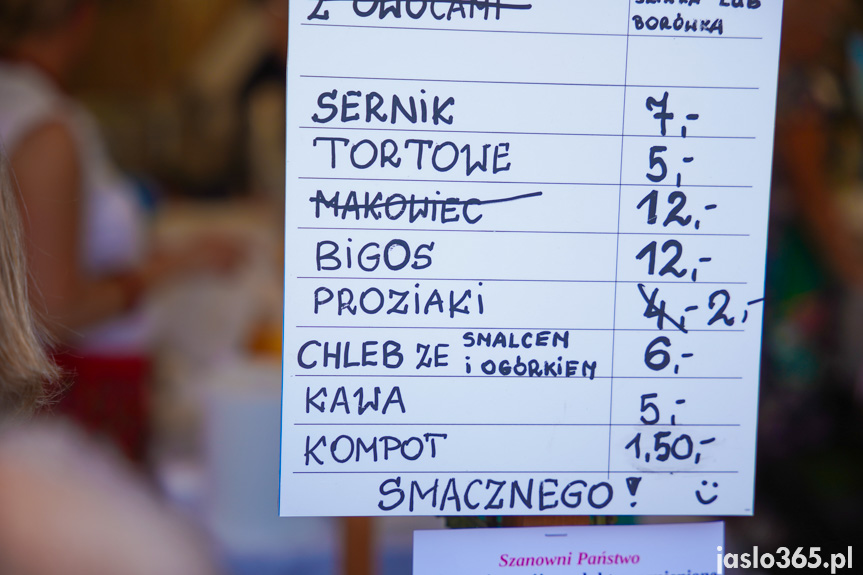 Z OWOCAMI
LUB
BORÓWKA
SERNIK 7,-
TORTOWE 5,-
MAKOWIEC 12,-
BiGOS 12,-
PROZiAKi 4,- 2,-
CHLEB ZE SMALCEM i OGÓRKIEM 6,-
KAWA 5,-
KOMPOT 1,50,-
SMACZNEGO!
Szanowni Państwo
jaslo365.pl